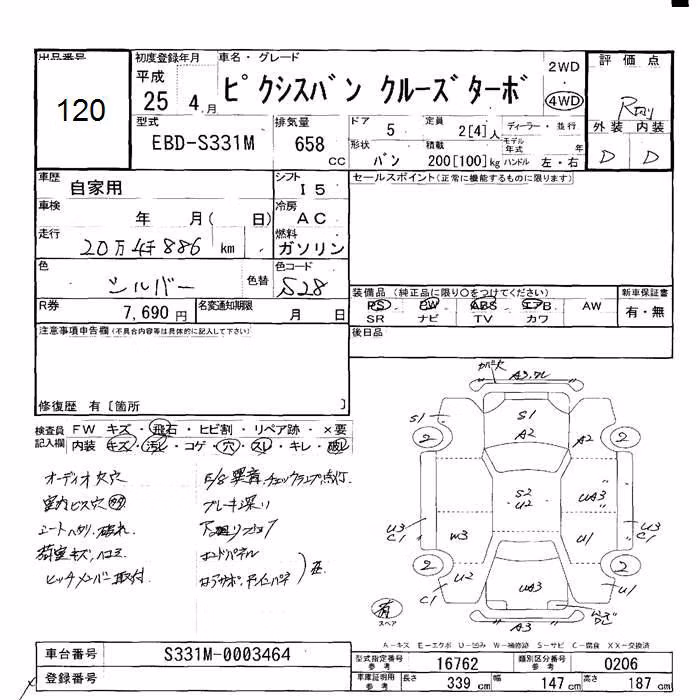 出品番号
120
初度登録年月
平成
25 4月
車名・グレード
ピクシスバン クルーズターボ
2WD
4WD
評価点
外装 内装
D D
型式
EBD-S331M
排気量
658 CC
ドア 5
定員 2[4]人
ディーラー・並行
形状 バン
積載 200[100]kg
モデル年式 年
ハンドル 左・右
車歴 自家用
シフト I5
セールスポイント(正常に機能するものに限ります)
車検 年 月( 日)
冷房 AC
走行 20万4千886 km
燃料 ガソリン
色 シルバー 色替
色コード S28
装備品 (純正品に限り○をつけてください)
新車保証書
PS PW ABS エアB AW
有・無
SR ナビ TV カワ
R券 7,690円
名変通知期限 月 日
後日品
注意事項申告欄(不具合内容等は具体的に記入して下さい)
修復歴 有〔箇所 〕
検査員記入欄
FW キズ・飛石・ヒビ割・リペア跡・×要
内装 キズ・汚れ・コゲ・穴・スレ・キレ・破れ
オーディオ欠穴
室内ビス穴
シートヘタリ、破れ
荷室キズ、ヘコミ
ヒッチメンバー取付
E/g異音、チェックランプ点灯
ブレーキ深リ
カバー欠
A3.ワレ
S1
S1
A2
A2
2
2
S2
U2
UA3
U3
C1
W3
U1
U3
C1
2
2
U2
C1
UA3
U1
A3
有
スペア
A-キズ E-エクボ U-凹み W-補修跡 S-サビ C-腐食 XX-交換済
車台番号 S331M-0003464
登録番号
型式指定番号 参考 16762
類別区分番号 参考 0206
車庫証明用 参考 長さ 339 cm 幅 147 cm 高さ 187 cm